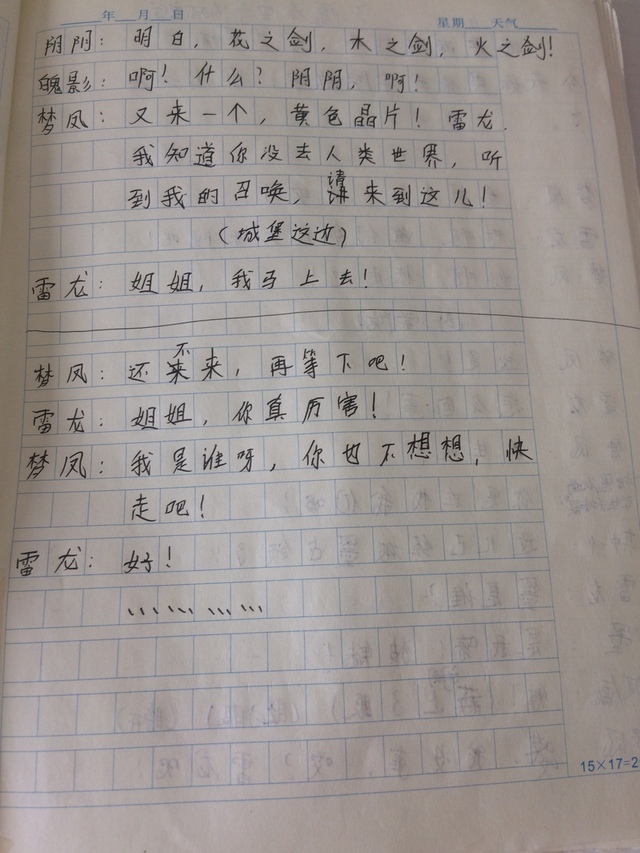 年 月 日 星期 天气
阴阴：明白，花之剑，水之剑，火之剑！
魄影：啊！什么？阴阴，啊！
梦凤：又来一个，黄色晶片！雷龙，
我知道你没去人类世界，听
到我的召唤，请来到这儿！
（城堡这边）
雷龙：姐姐，我马上去！
梦凤：还不来，再等下吧！
雷龙：姐姐，你真厉害！
梦凤：我是谁呀，你也不想想，快
走吧！
雷龙：好！
、、、、、、、、、、、、
15×17=2